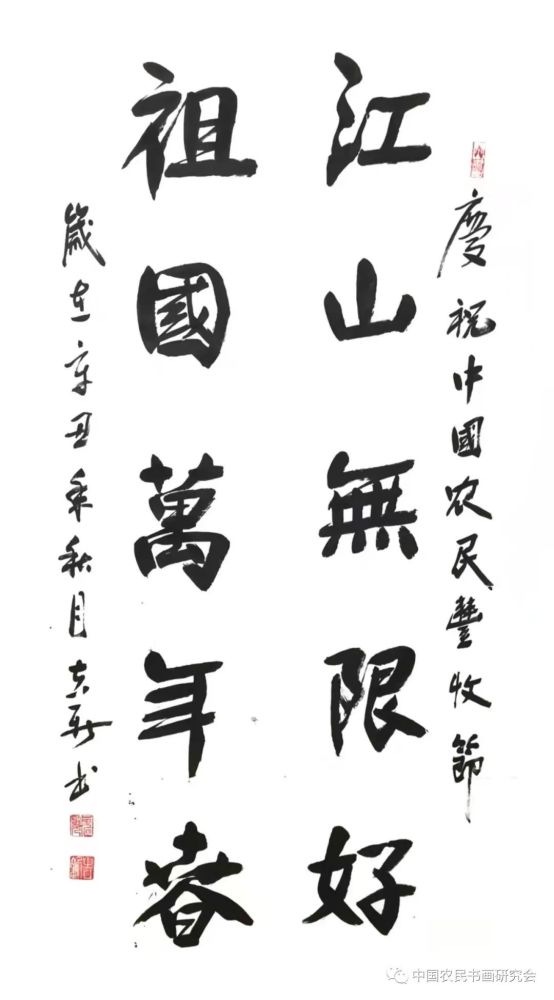 慶祝中國农民豐收節
江山無限好
祖國萬年春
歲在辛丑年秋月书
中国农民书画研究会